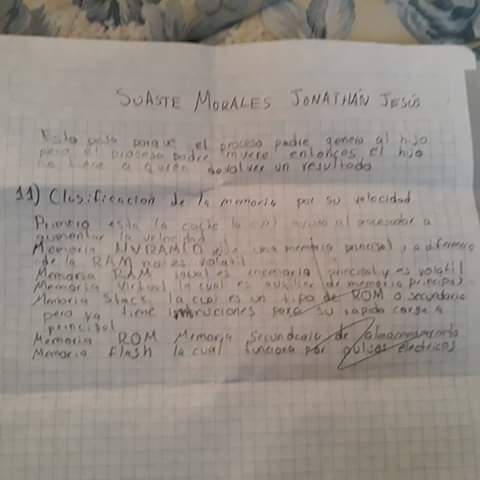 SUASTE MORALES JONATHÁN JESÚS
Esto pasa porque el proceso padre genera al hijo
pero el proceso padre muere entonces el hijo
no tiene a quién devolver un resultado
11) Clasificacion de la memoria por su velocidad
Primero esta la caché la cual ayuda al procesador a
aumentar la velocidad
Memoria NVRAM una memoria principal, a diferencia
de la RAM no es volatil
Memoria RAM igual es memoria principal y es volátil
Memoria Virtual la cual es auxiliar de memoria principal
Memoria Stack la cual es un tipo de ROM o secundaria
pero ya tiene instrucciones para su rapida carga a
principal
Memoria ROM Memoria secundaria de almacenamiento
Memoria flash la cual funciona por pulsos eléctricos